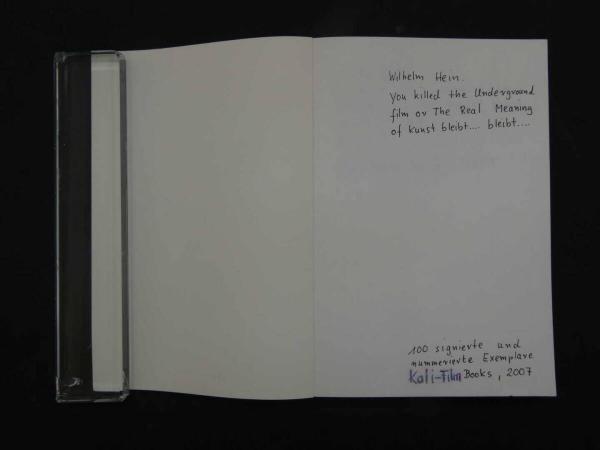 Wilhelm Hein.
You killed the Underground
film or The Real Meaning
of kunst bleibt.... bleibt....
100 signierte und
nummerierte Exemplare
Kali-Film Books, 2007